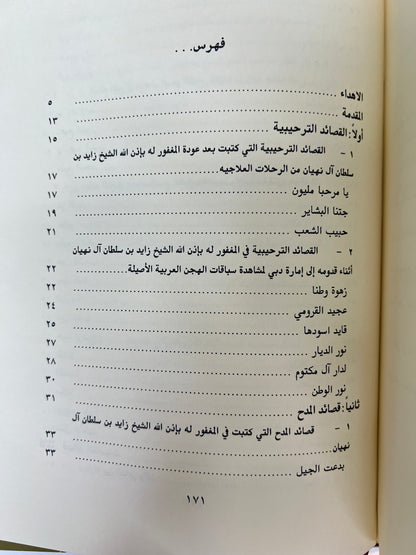 فهرس...
الاهداء ........ ٥
المقدمة ........ ١٣
أولاً: القصائد الترحيبية ........ ١٥
١ - القصائد الترحيبية التي كتبت بعد عودة المغفور له بإذن الله الشيخ زايد بن
سلطان آل نهيان من الرحلات العلاجيه ........ ١٧
يا مرحبا مليون ........ ١٧
جتنا البشاير ........ ١٩
حبيب الشعب ........ ٢١
٢ - القصائد الترحيبية في المغفور له بإذن الله الشيخ زايد بن سلطان آل نهيان
أثناء قدومه إلى إمارة دبي لمشاهدة سباقات الهجن العربية الأصيلة ........ ٢٢
زهوة وطنا ........ ٢٢
عجيد القرومي ........ ٢٤
قايد اسودها ........ ٢٥
نور الديار ........ ٢٧
لدار آل مكتوم ........ ٢٨
نور الوطن ........ ٣٠
ثانياً: قصائد المدح ........ ٣١
١ - قصائد المدح التي كتبت في المغفور له بإذن الله الشيخ زايد بن سلطان آل
نهيان ........ ٣٣
بدعت الجيل ........ ٣٣
١٧١